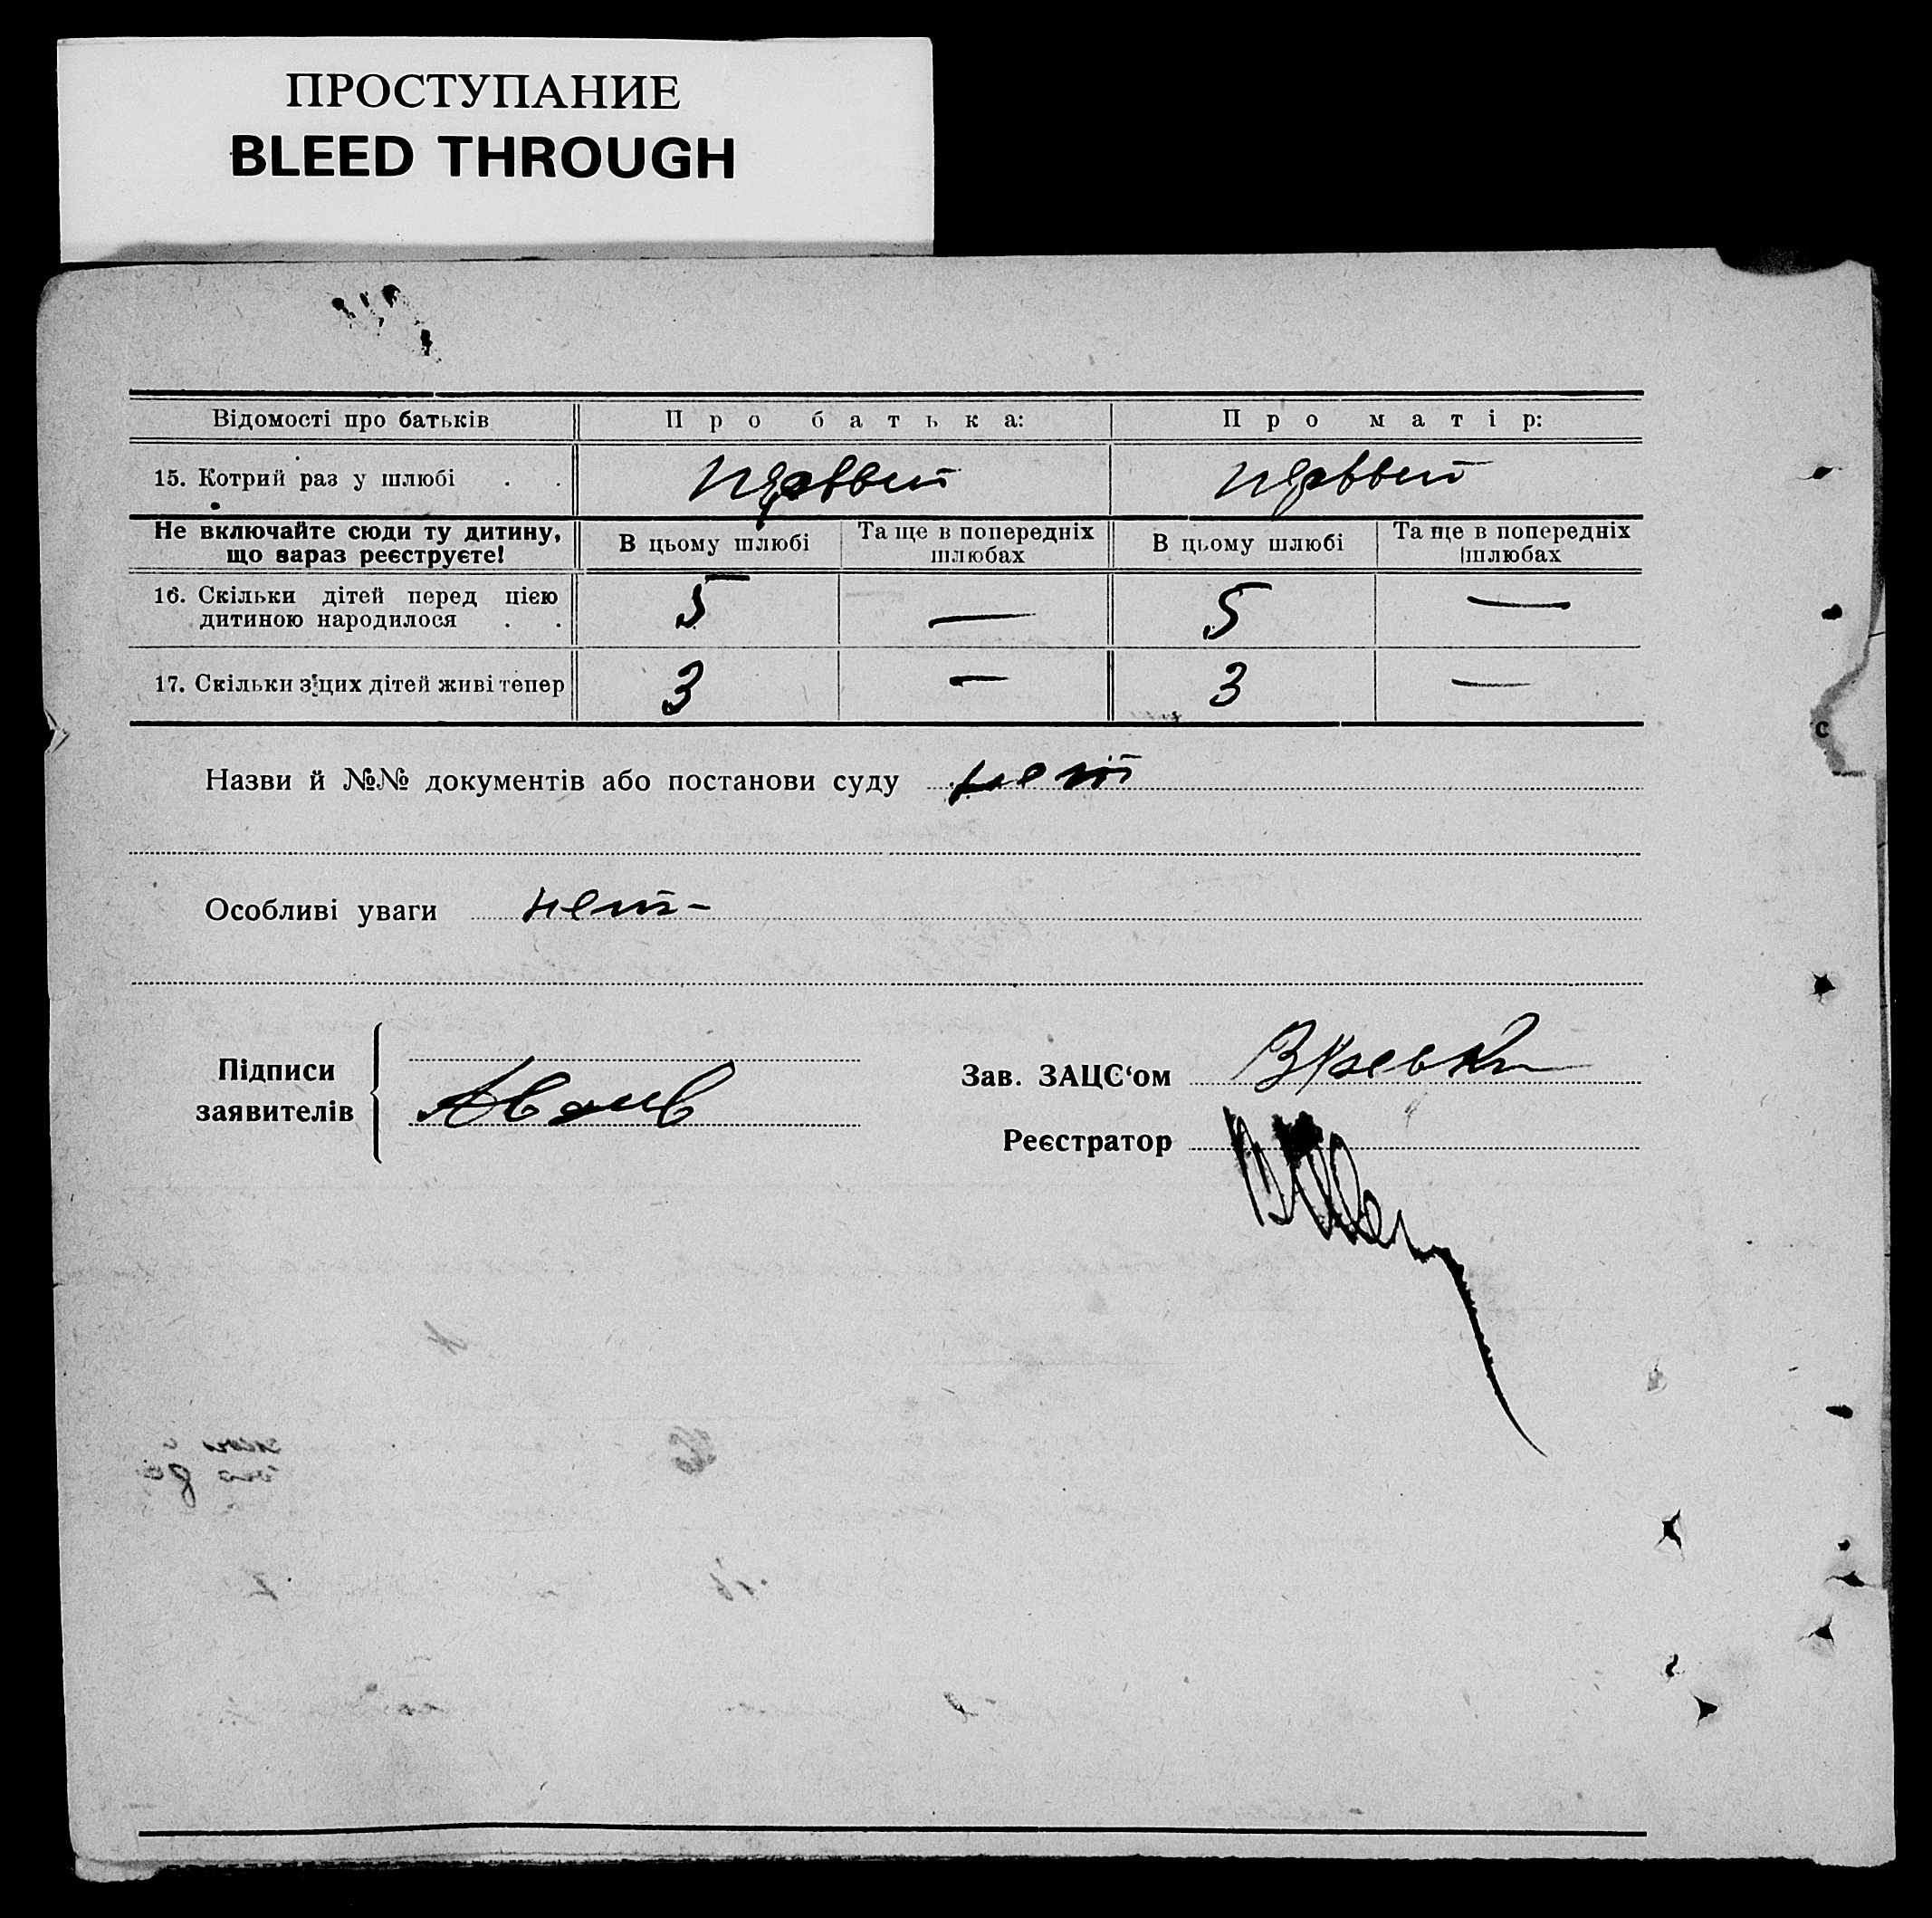 ПРОСТУПАНИЕ
BLEED THROUGH
Відомості про батьків Про батька: Про матір:
15. Котрий раз у шлюбі . . первый первый
Не включайте сюди ту дитину, що зараз реєструєте! В цьому шлюбі Та ще в попередніх шлюбах В цьому шлюбі Та ще в попередніх шлюбах
16. Скільки дітей перед цією дитиною народилося . . 5 — 5 —
17. Скільки з цих дітей живі тепер 3 — 3 —
Назви й №№ документів або постанови суду нет
Особливі уваги нет -
Підписи заявителів
Зав. ЗАЦС‘ом
Реєстратор